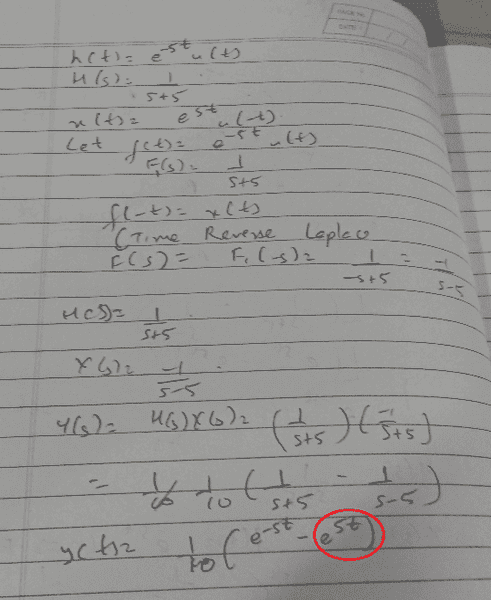 PAGE NO.
DATE
h(t) = e^-5t u(t)
H(s) = 1/(s+5)
x(t) = e^5t u(-t)
Let f(t) = e^-5t u(t)
F₁(s) = 1/(s+5)
f(-t) = x(t)
(Time Reverse Laplace
F(s) = F₁(-s) = 1/(-s+5) = -1/(s-5)
H(s) = 1/(s+5)
X(s) = -1/(s-5)
Y(s) = H(s)X(s) = (1/(s+5)) (-1/(s+5))
= 1/10 (1/(s+5) - 1/(s-5))
y(t) = 1/10 (e^-5t - e^5t)